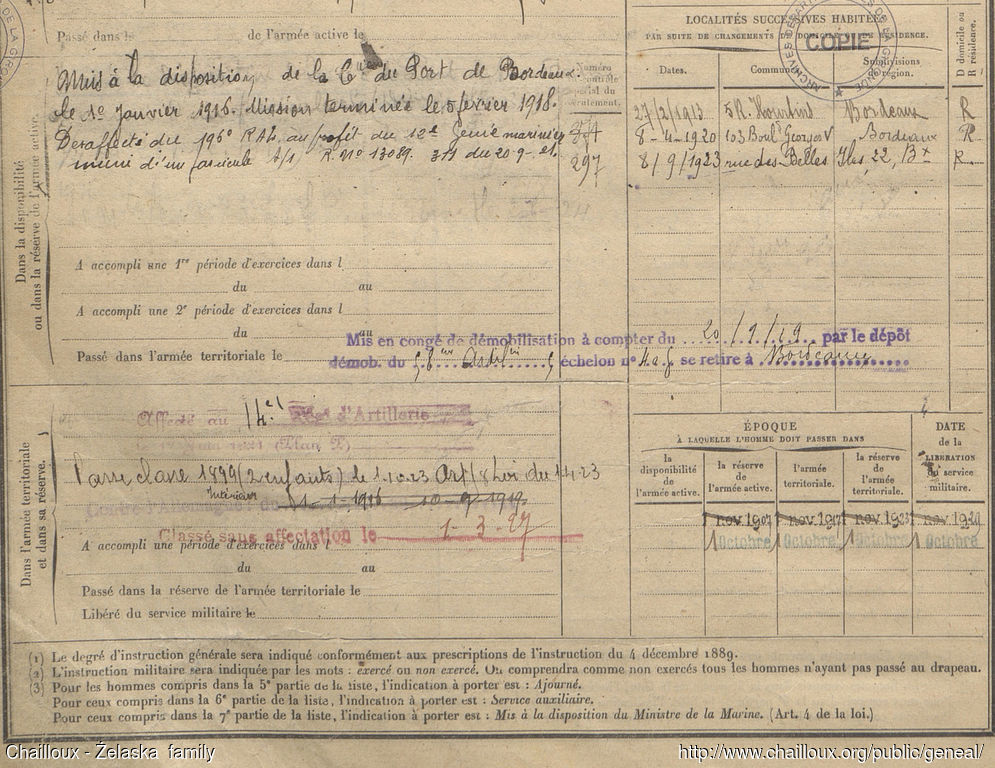 Passé dans le de l'armée active le
Mis à la disposition de la Cie du Port de Bordeaux.
le 1er janvier 1916. Mission terminée le 5 février 1918.
Desaffecté du 196e RAL au profit du 12e Génie
muni d'un fascicule R. No 13089. du 20-9-21.
Numéro
contrôle
spécial du
recrutement.
297
Dans la disponibilité
ou dans la réserve de l'armée active.
A accompli une 1re période d'exercices dans l
du au
A accompli une 2e période d'exercices dans l
du au
Passé dans l'armée territoriale le
Mis en congé de démobilisation à compter du 20/1/19 par le dépôt
démob. du 58e Artillie échelon no se retire à Bordeaux
LOCALITÉS SUCCESSIVES HABITÉES
PAR SUITE DE CHANGEMENTS DE DOMICILE OU DE RÉSIDENCE.
D domicile ou
R résidence.
Dates. Communes. Subdivisions
de région.
ARCHIVES DÉPARTEMENTALES DE LA GIRONDE
COPIE
27/2/1913 5 R. Bordeaux R
8-4-1920 103 Boul. Georges V Bordeaux R
8/9/1923 rue des Belles Iles 22, Bx R
Dans l'armée territoriale
et dans sa réserve.
Affecté au 14e d'Artillerie
Passe classe 1899 (2 enfants) le 1-10-23 Art 58 Loi du 1-4-23
Intérieur
1-1-1916 10-9-1919
Classé sans affectation le 1-3-27
A accompli une période d'exercices dans l
du au
Passé dans la réserve de l'armée territoriale le
Libéré du service militaire le
ÉPOQUE
À LAQUELLE L'HOMME DOIT PASSER DANS
DATE
de la
LIBÉRATION
du service
militaire.
la
disponibilité
de
l'armée active.
la réserve
de
l'armée active.
l'armée
territoriale.
la réserve
de
l'armée
territoriale.
1 nov 1907 1 nov 1917 1 nov 1923 nov 1929
1 Octobre 1 Octobre 1 Octobre 1 Octobre
(1) Le degré d'instruction générale sera indiqué conformément aux prescriptions de l'instruction du 4 décembre 1889.
(2) L'instruction militaire sera indiquée par les mots : exercé ou non exercé. On comprendra comme non exercés tous les hommes n'ayant pas passé au drapeau.
(3) Pour les hommes compris dans la 5e partie de la liste, l'indication à porter est : Ajourné.
Pour ceux compris dans la 6e partie de la liste, l'indication à porter est : Service auxiliaire.
Pour ceux compris dans la 7e partie de la liste, l'indication à porter est : Mis à la disposition du Ministre de la Marine. (Art. 4 de la loi.)
Chailloux - Żelaska family
http://www.chailloux.org/public/geneal/